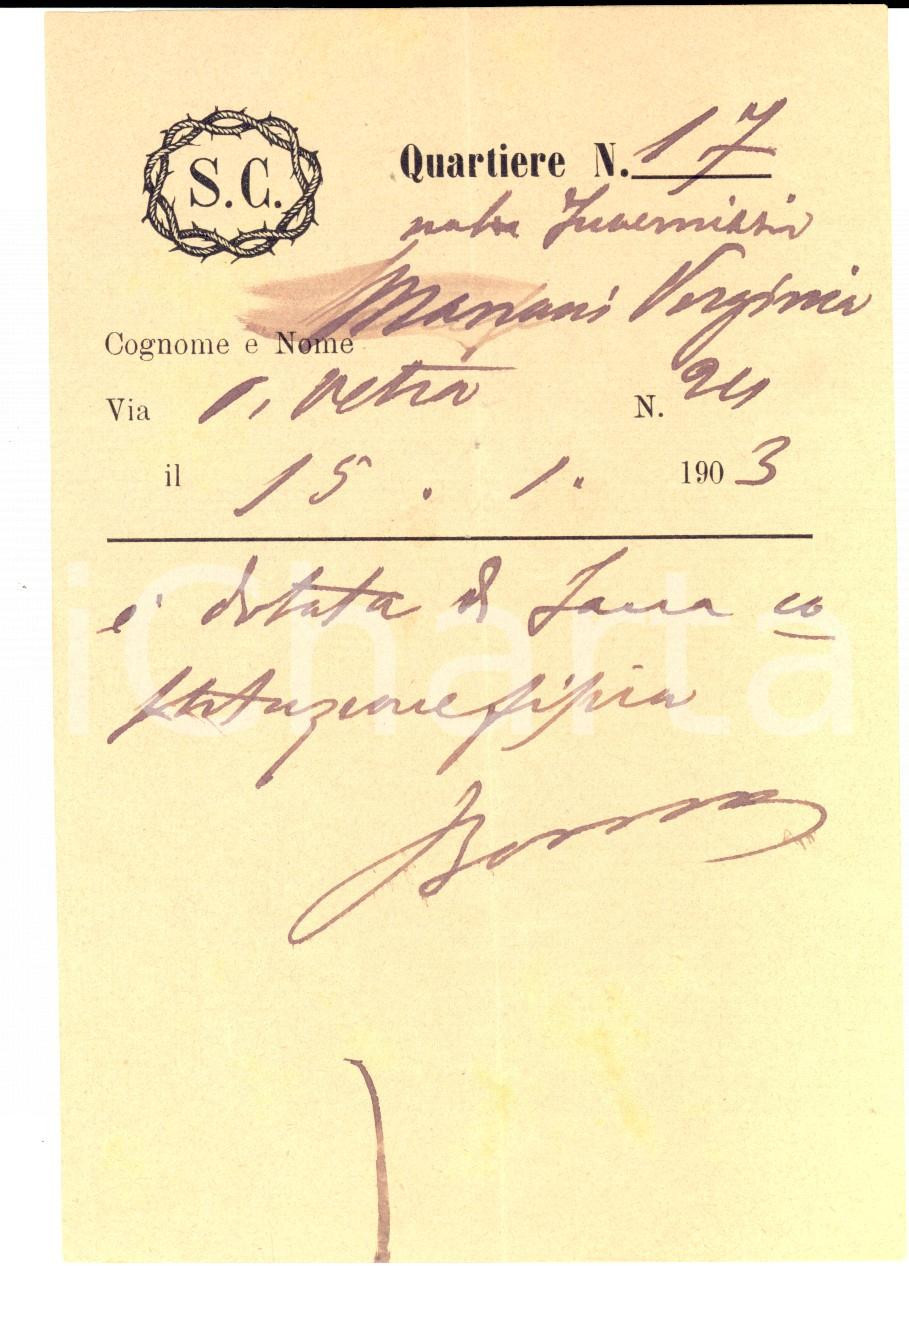 S.C.
Quartiere N. 17
Invernizzi
Mariani Virginia
Cognome e Nome
Via P. Vetra N. 24
il 15. 1. 1903
e' dotata di sana co
stituzione fisica
iCharta